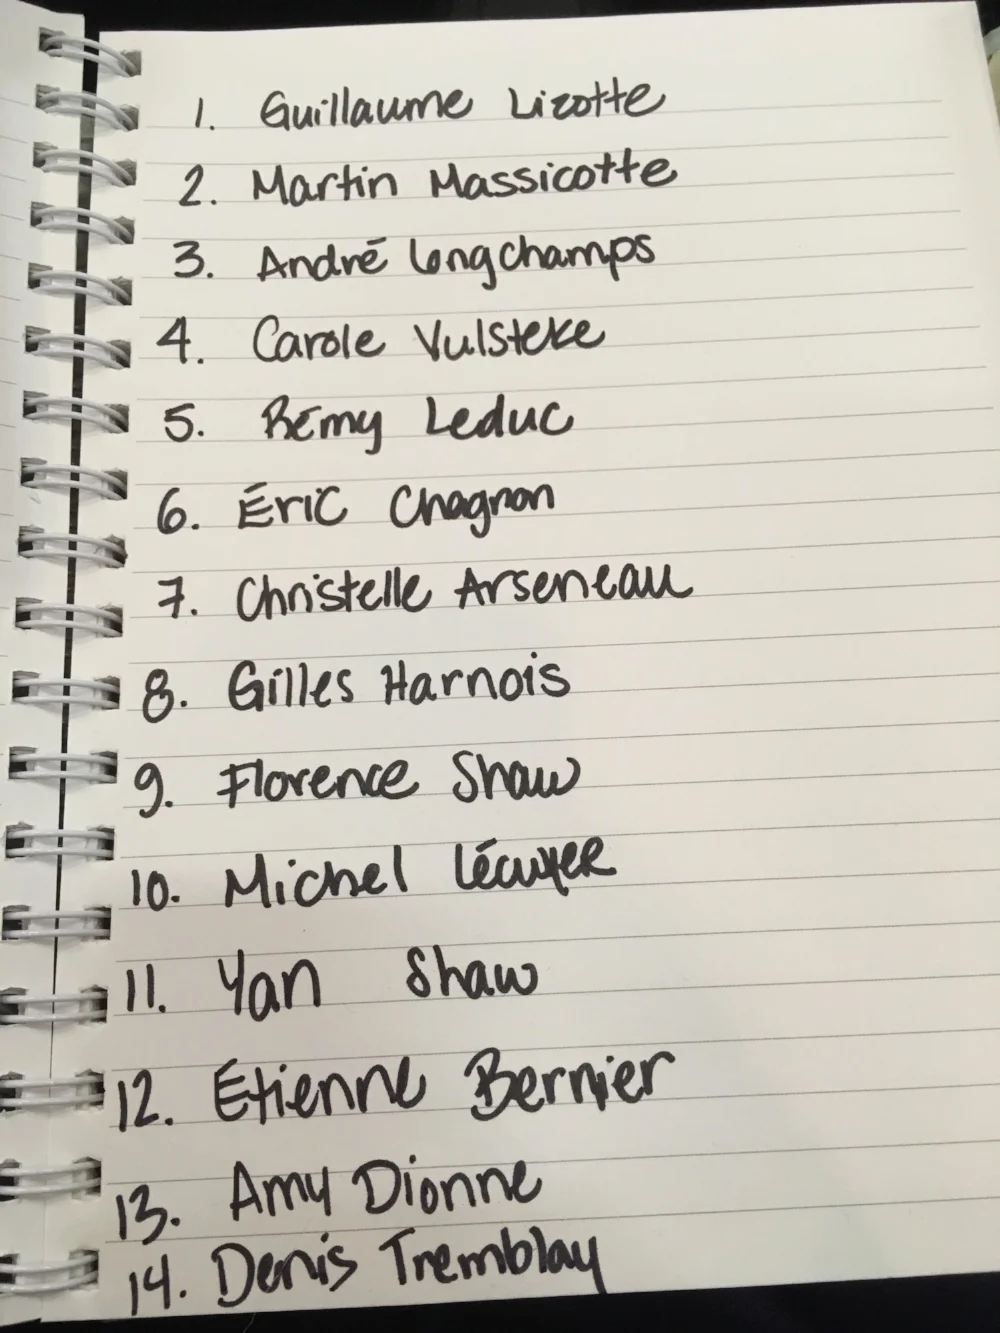 1. Guillaume Lizotte
2. Martin Massicotte
3. André Longchamps
4. Carole Vulsteke
5. Rémy Leduc
6. Éric Chagnon
7. Christelle Arseneau
8. Gilles Harnois
9. Florence Shaw
10. Michel Lécuyer
11. Yan Shaw
12. Étienne Bernier
13. Amy Dionne
14. Denis Tremblay